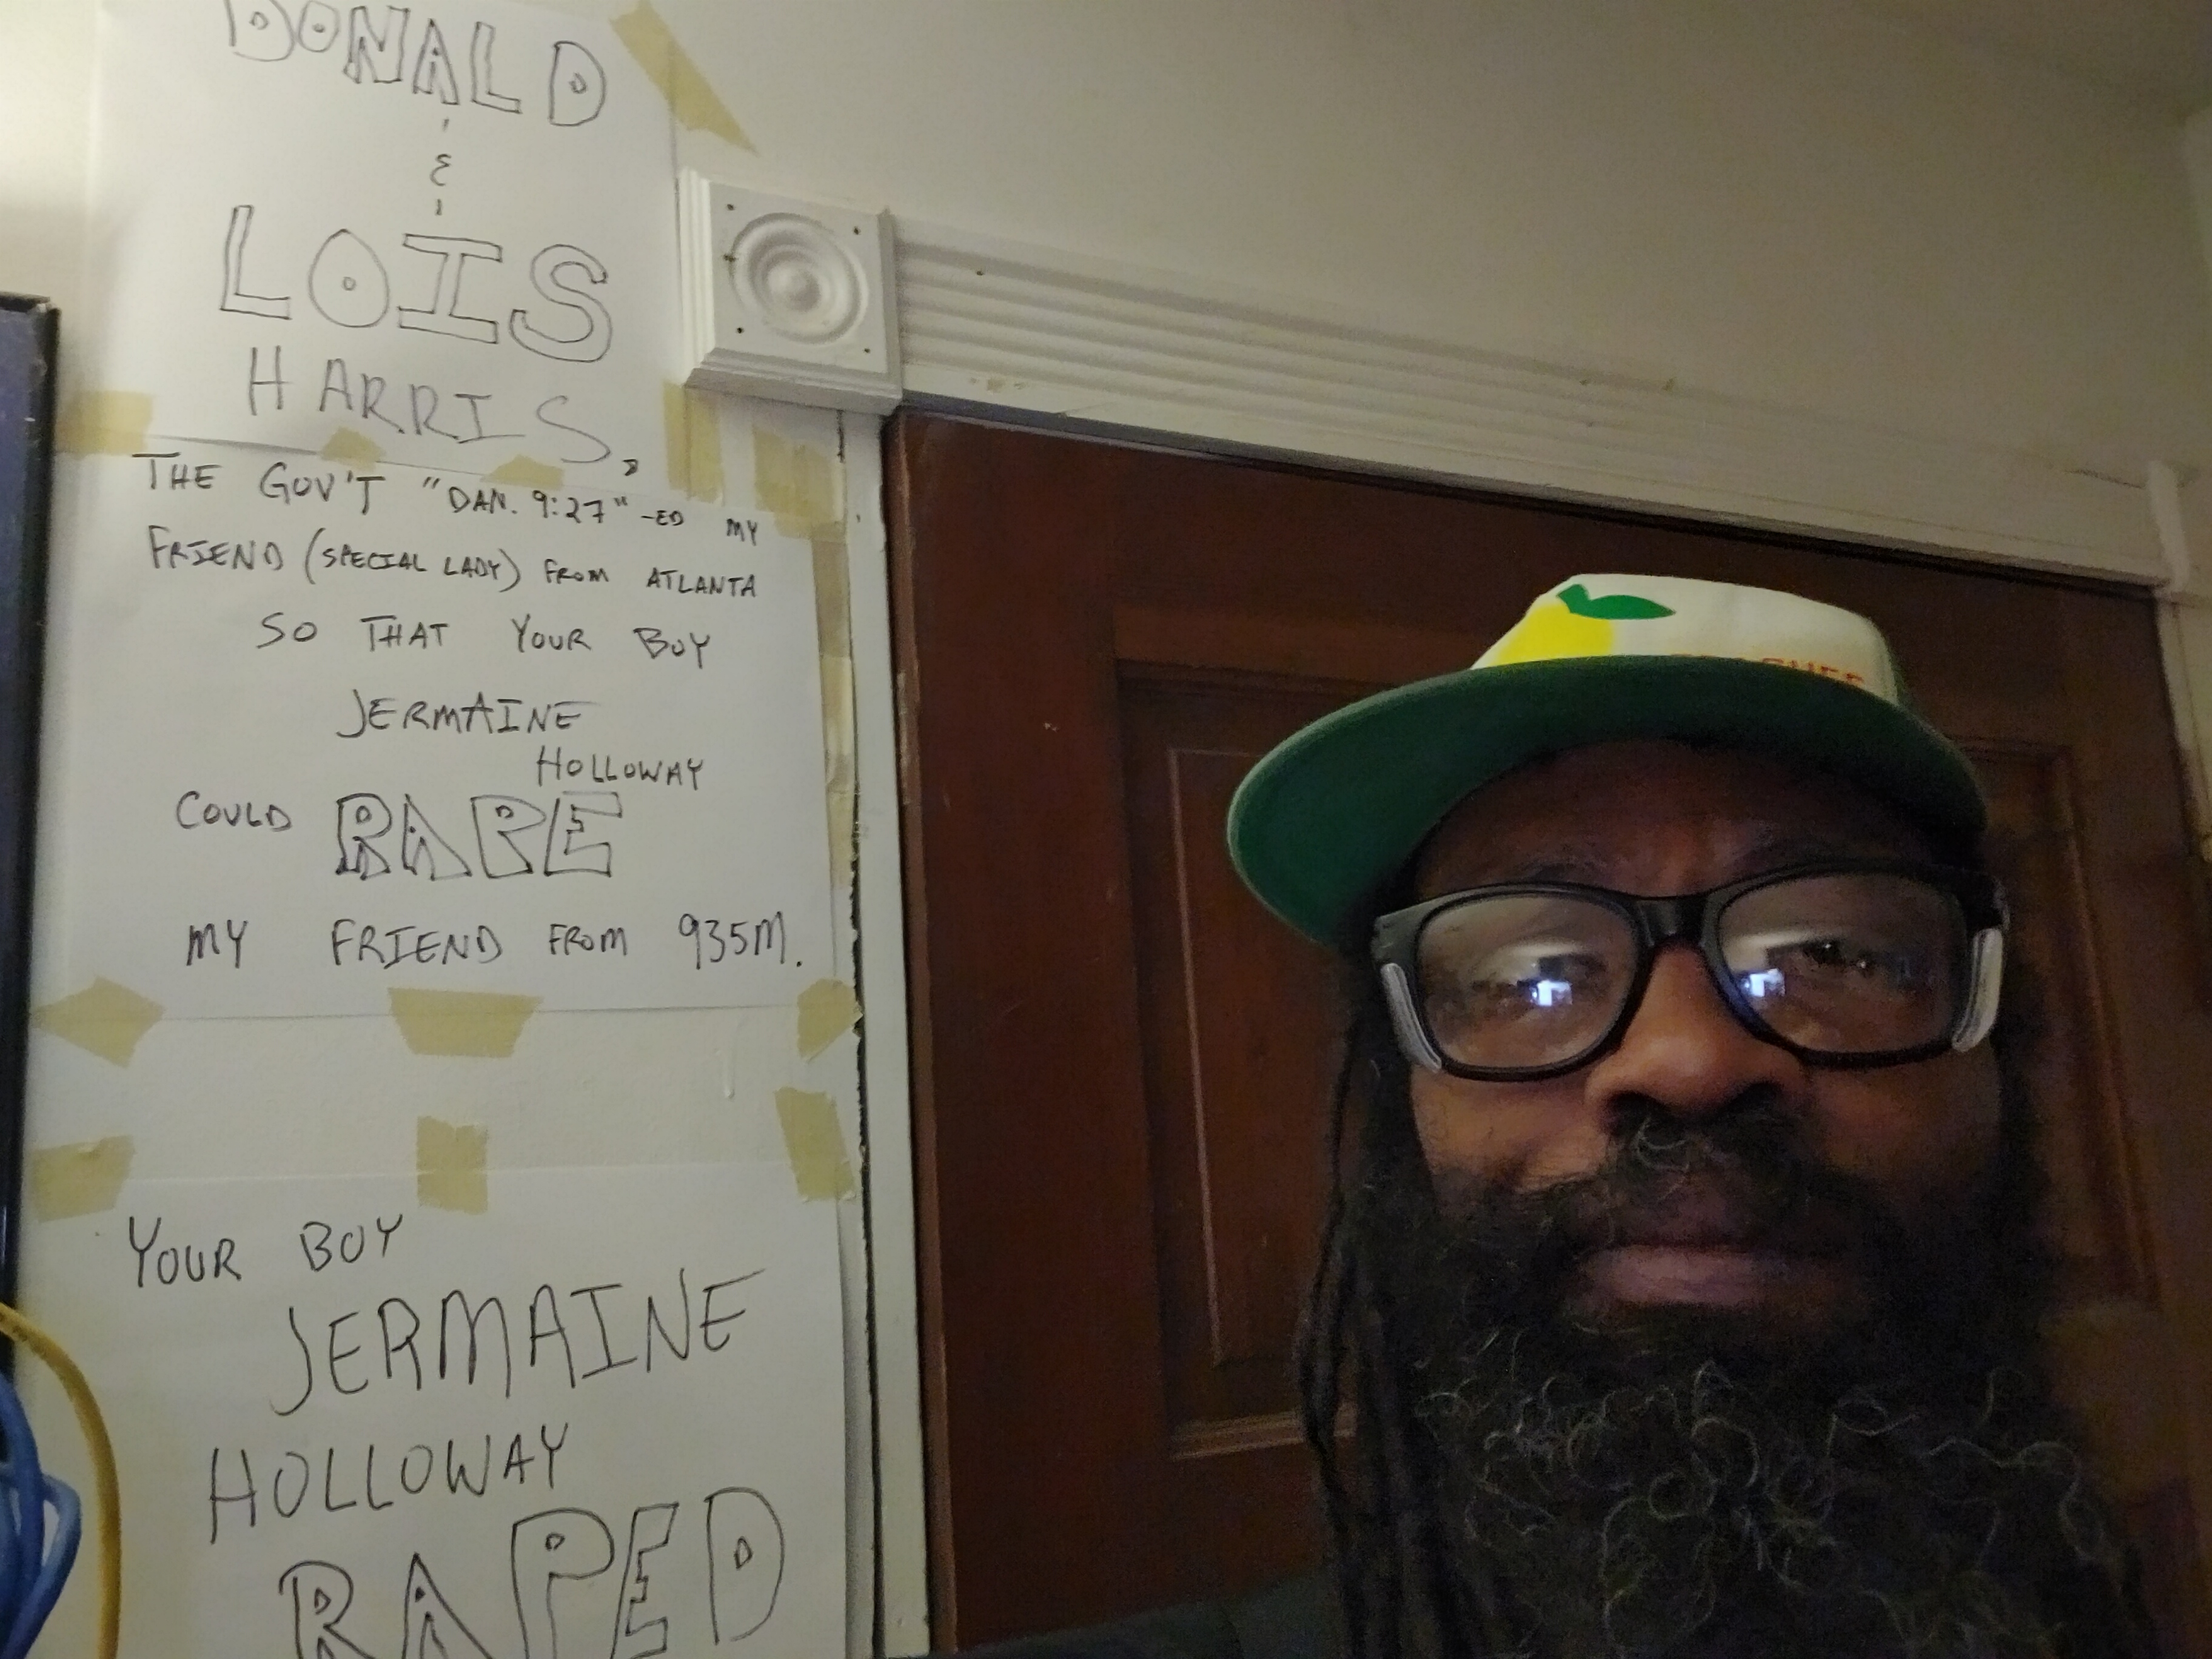 DONALD
&
LOIS
HARRIS,
THE GOV'T "DAN. 9:27" -ED MY
FRIEND (SPECIAL LADY) FROM ATLANTA
SO THAT YOUR BOY
JERMAINE
HOLLOWAY
COULD RAPE
MY FRIEND FROM 935M.
YOUR BOY
JERMAINE
HOLLOWAY
RAPED